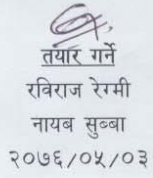 तयार गर्ने
रविराज रेग्मी
नायब सुब्बा
२०७६/०५/०३